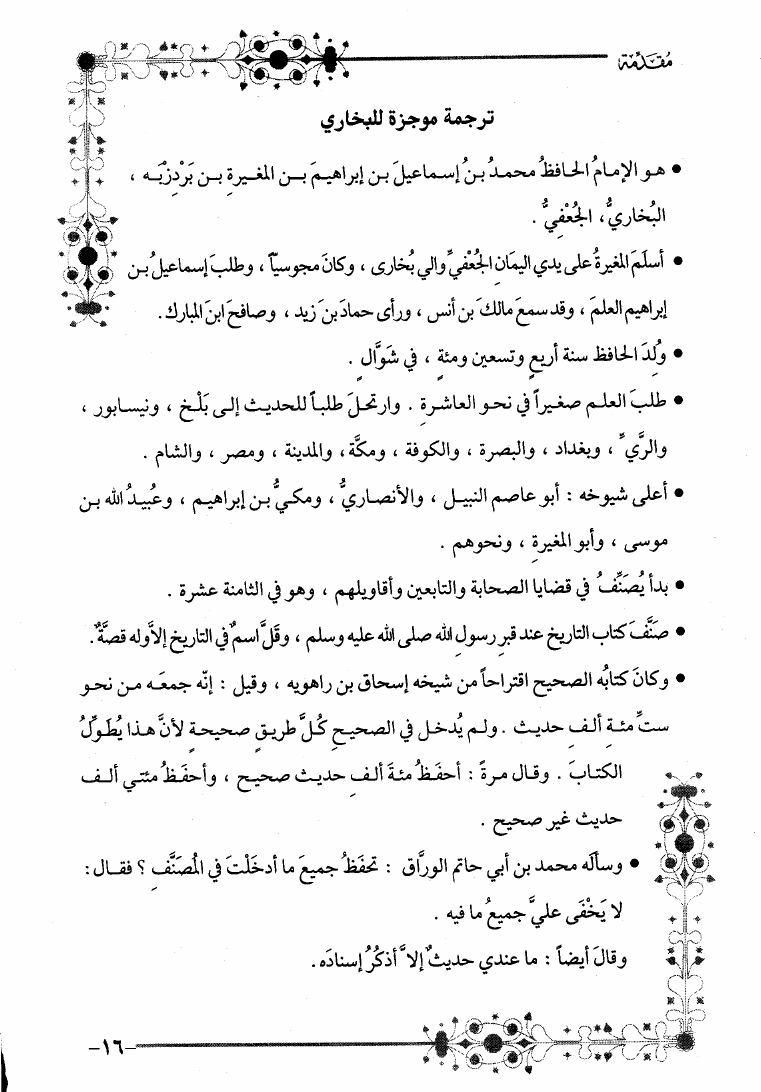 مُقَدِّمَة
ترجمة موجزة للبخاري
• هو الإمامُ الحافظُ محمدُ بنُ إسماعيلَ بن إبراهيمَ بن المغيرةِ بن بَرْدِزْبَه ،
البُخاريُّ، الجُعْفِيُّ .
• أسلَمَ المغيرةُ على يدي اليمَانِ الجُعْفيِّ والي بُخارى ، وكانَ مجوسيّاً ، وطلبَ إسماعيلُ بن
إبراهيم العلمَ ، وقد سمعَ مالكَ بن أنس ، ورأى حمادَ بنَ زيد ، وصافحَ ابنَ المبارك.
• وُلِدَ الحافظ سنة أربعٍ وتسعين ومئةٍ ، في شَوَّالٍ .
• طلبَ العلم صغيراً في نحو العاشرةِ . وارتحلَ طلباً للحديث إلى بَلْخ ، ونيسابور ،
والرَّيِّ ، وبغداد ، والبصرة ، والكوفة ، ومكَّة، والمدينة ، ومصر ، والشام .
• أعلى شيوخه : أبو عاصم النبيل ، والأنصاريُّ ، ومكيُّ بن إبراهيم ، وعُبيدُ الله بن
موسى ، وأبو المغيرةِ ، ونحوهم .
• بدأ يُصَنِّفُ في قضايا الصحابة والتابعين وأقاويلهم ، وهو في الثامنة عشرة .
• صَنَّفَ كتاب التاريخ عند قبرِ رسولِ الله صلى الله عليه وسلم ، وقلَّ اسمٌ في التاريخ إلاَّ وله قصَّةٌ.
• وكانَ كتابُه الصحيح اقتراحاً من شيخه إسحاق بن راهويه ، وقيل : إنّه جمعَه من نحو
ستِّ مئةِ ألفِ حديث . ولم يُدخل في الصحيحِ كُلَّ طريقٍ صحيحةٍ لأنَّ هذا يُطَوِّلُ
الكتابَ . وقال مرةً : أحفَظُ مئةَ ألفِ حديث صحيح ، وأحفَظُ مئتي ألف
حديث غير صحيح .
• وسأله محمد بن أبي حاتم الورَّاق : تحفَظُ جميعَ ما أدخَلْتَ في المُصَنَّفِ ؟ فقال:
لا يَخْفَى عليَّ جميعُ ما فيه .
وقالَ أيضاً : ما عندي حديثٌ إلاَّ أذكُرُ إسنادَه.
-١٦-